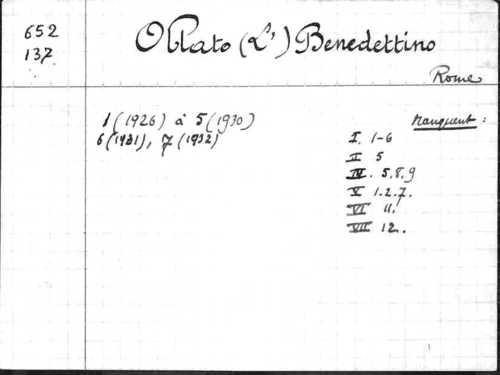 652
137
Oblato (L') Benedettino
Rome
1 (1926) à 5 (1930)
6 (1931), 7 (1932)
Manquent :
I. 1-6
II 5
IV. 5.8.9
V 1.2.7.
VI 11.
VII 12.